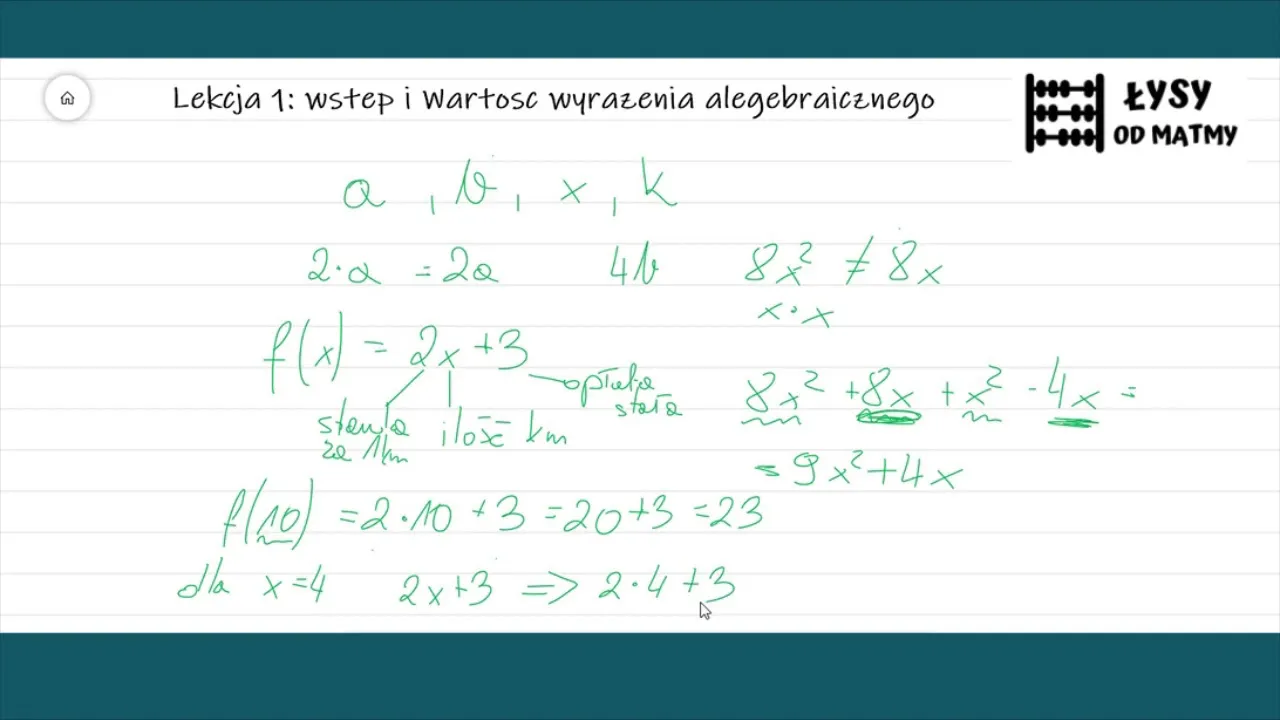 Lekcja 1: wstep i Wartosc wyrazenia alegebraicznego
ŁYSY
OD MATMY
a , b , x , k
2·a = 2a 4b 8x² ≠ 8x
x·x
f(x) = 2x + 3
opłata
stała
stawka
za 1km
ilość km
8x² + 8x + x² - 4x =
= 9x² + 4x
f(10) = 2·10 + 3 = 20 + 3 = 23
dla x = 4 2x + 3 => 2·4 + 3